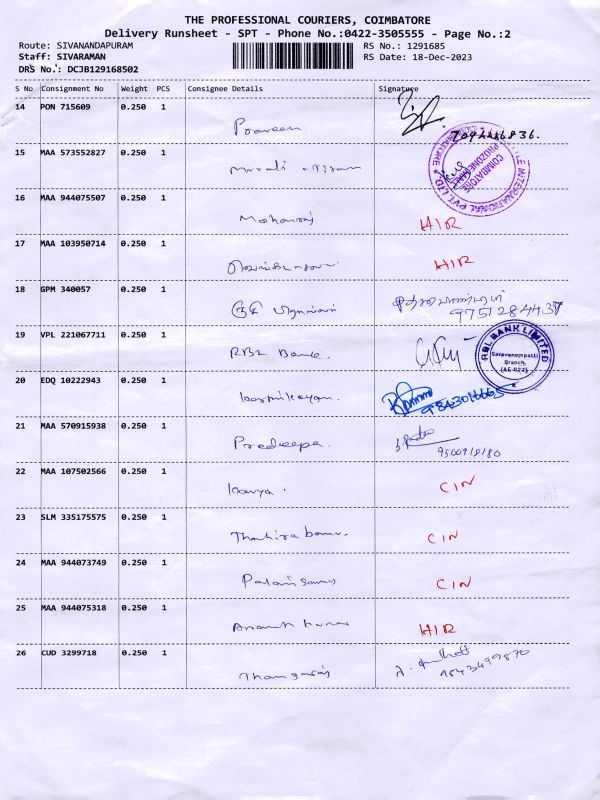 THE PROFESSIONAL COURIERS, COIMBATORE
Delivery Runsheet - SPT - Phone No.:0422-3505555 - Page No.:2
Route: SIVANANDAPURAM
RS No.: 1291685
Staff: SIVARAMAN
RS Date: 18-Dec-2023
DRS No.: DCJB129168502
S No Consignment No Weight PCS Consignee Details Signature
14 PON 715609 0.250 1
Praveen
15 MAA 573552827 0.250 1
Murali
COIMBATORE
PROZONE MALL
INTERNATIONAL PVT. LTD
16 MAA 944075507 0.250 1
Mohanraj HIR
17 MAA 103950714 0.250 1
HIR
18 GPM 340057 0.250 1
9751284437
19 VPL 221067711 0.250 1
RBL Bank.
RBL BANK LIMITED
Saravanampatti
Branch.
20 EDQ 10222943 0.250 1
Karthikeyan.
21 MAA 570915938 0.250 1
Pradeepa
9500918180
22 MAA 107502566 0.250 1
Kavya. CIN
23 SLM 335175575 0.250 1
Thahira banu. CIN
24 MAA 944073749 0.250 1
Palanisamy CIN
25 MAA 944075318 0.250 1
Ananth kumar HIR
26 CUD 3299718 0.250 1
Thangaraj
9543499870